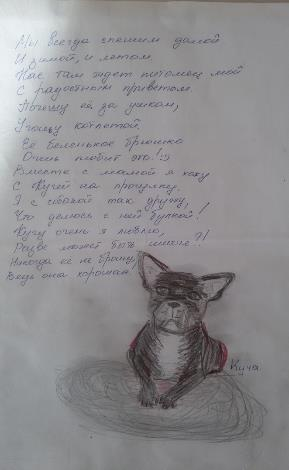 Мы всегда спешим домой
И зимой, и летом.
Нас там ждет питомец мой
С радостным приветом.
Почешу её за ушком,
Угощу котлетой.
Её беленькое брюшко
Очень любит это!:)
Вместе с мамой я хожу
С Кучей на прогулку,
Я с собакой так дружу,
Что делюсь с ней булкой!
Кучу очень я люблю,
Разве может быть иначе?!
Никогда её не браню,
Ведь она хорошая.
Куча